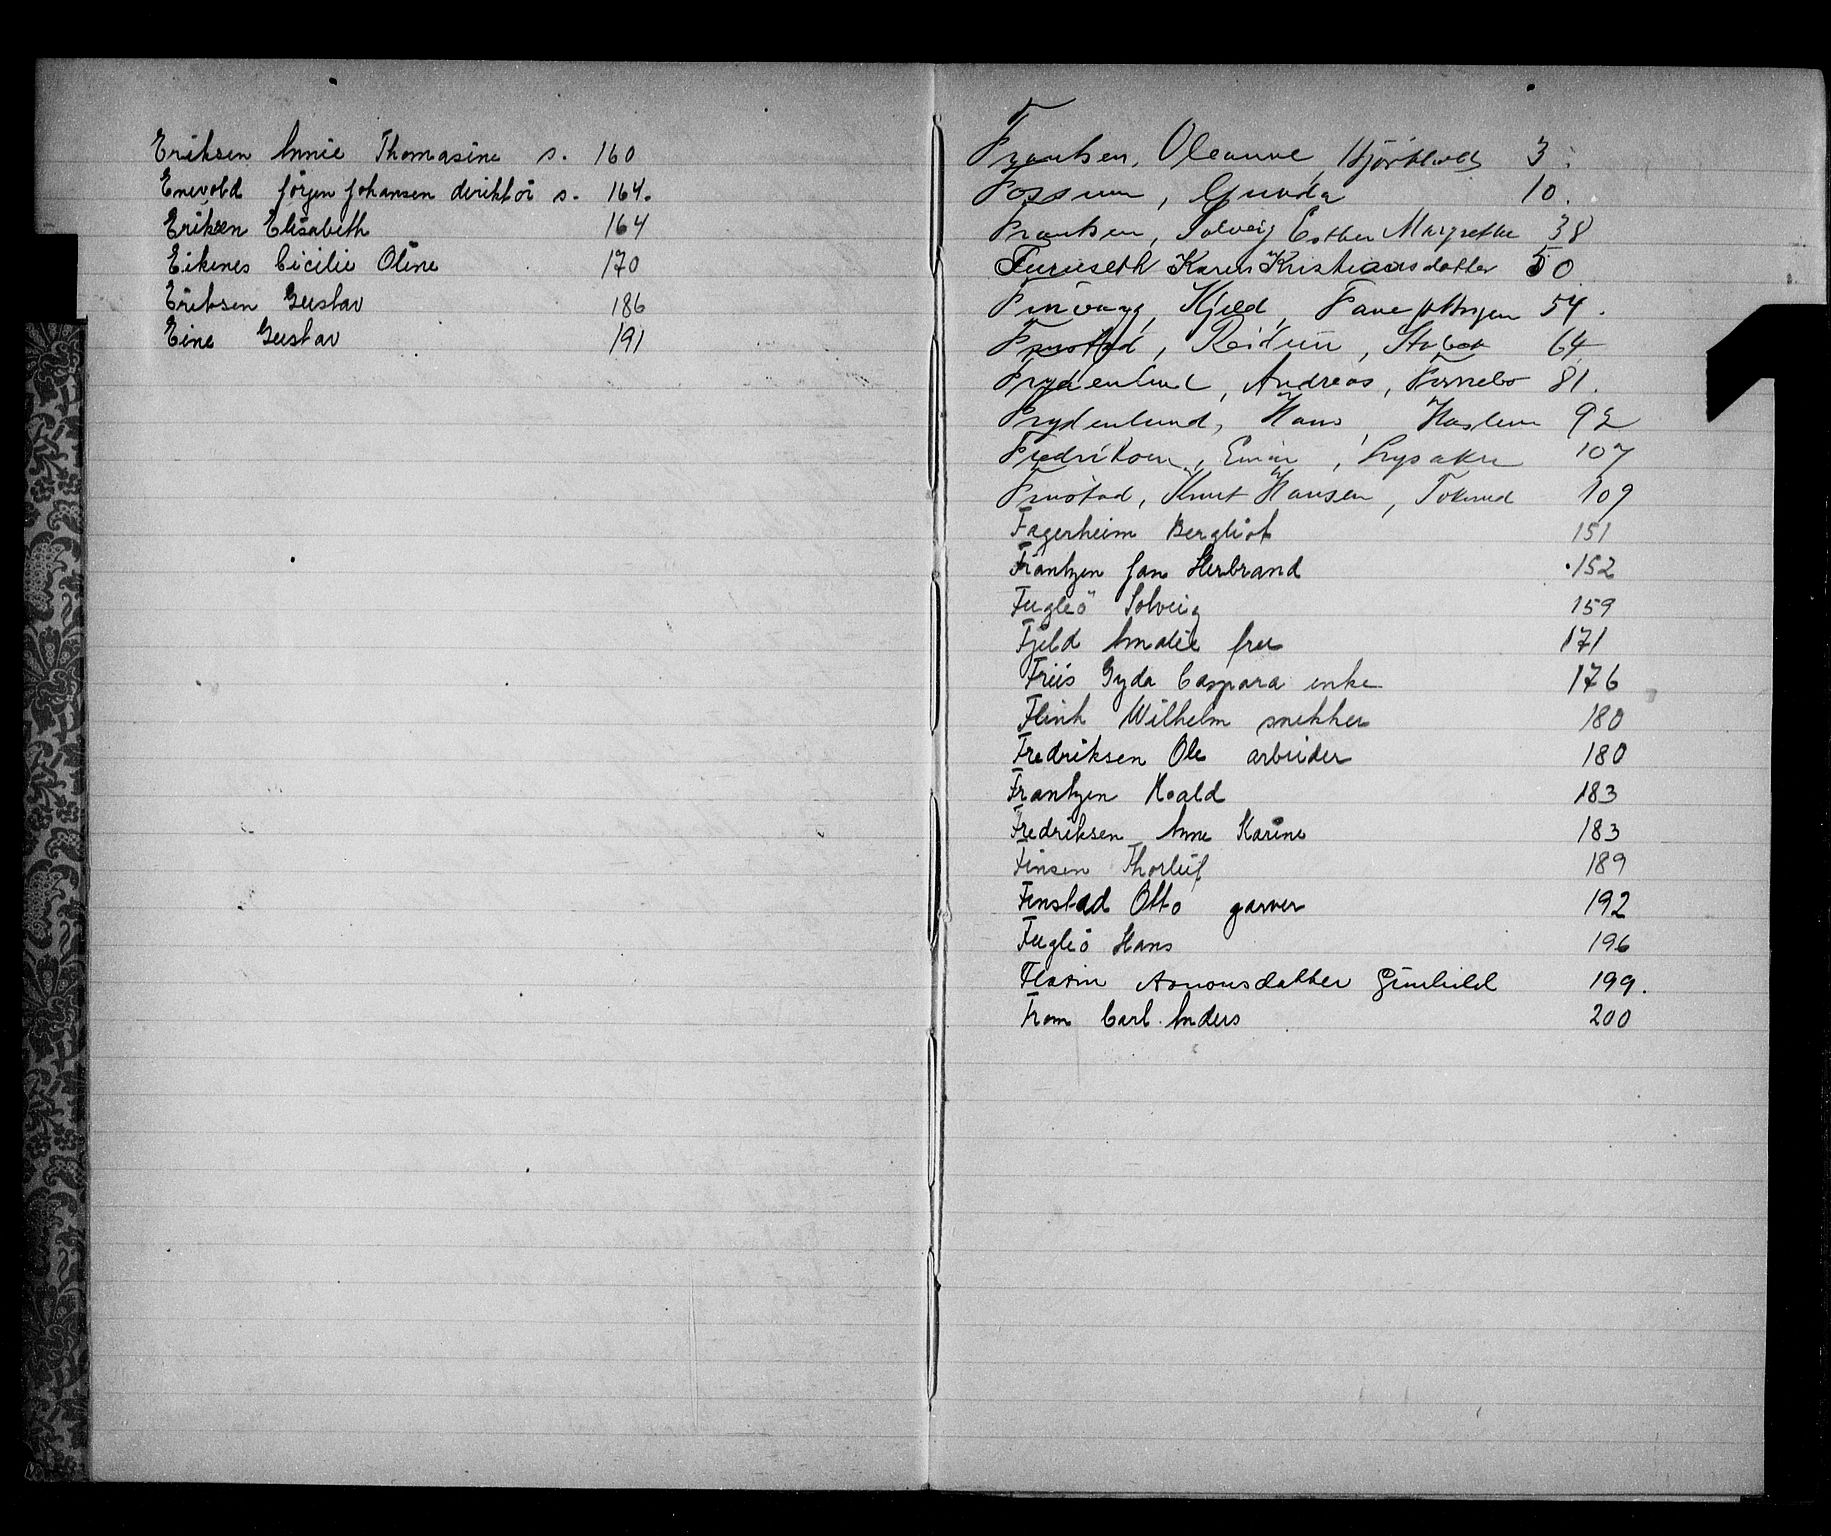 Eriksen Annie Thomasine s. 160
Enevold Jörgen Johansen direktör s. 164.
Eriksen Elisabeth 164
Eikenes Cicilie Oline 170
Eriksen Gustav 186
Eine Gustav 191
Frantsen, Oleanne, 3
Fossum, Gunda 10.
Frantsen, Solveig Esther Margrethe 38
Furuseth Karen Kristiansdatter 50
Kjeld, 54.
Reidun, Stabæk 64
Frydenlund, Andreas, Fornebo 81.
Frydenlund, Hans, Haslum 92
Fredriksen, Einar, Lysaker 107
Knut Hansen, 109
Fagerheim Bergliot 151
Frantzen Jan Herbrand 152
Fugleö Solveig 159
Fjeld Amalie frue 171
Friis Gyda Caspara enke 176
Flink Wilhelm snekker 180
Fredriksen Ole arbeider 180
Frantzen Roald 183
Fredriksen Anne Karine 183
Finsen Thorleif 189
Finstad Otto garver 192
Fugleö Hans 196
Gunhild 199.
From Carl Anders 200